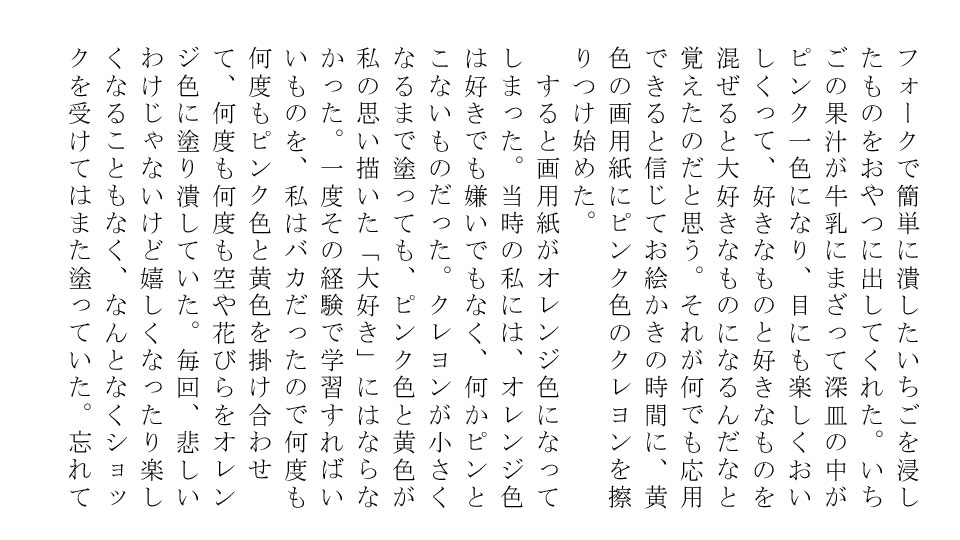 フォークで簡単に潰したいちごを浸し
たものをおやつに出してくれた。いち
ごの果汁が牛乳にまざって深皿の中が
ピンク一色になり、目にも楽しくおい
しくって、好きなものと好きなものを
混ぜると大好きなものになるんだなと
覚えたのだと思う。それが何でも応用
できると信じてお絵かきの時間に、黄
色の画用紙にピンク色のクレヨンを擦
りつけ始めた。
すると画用紙がオレンジ色になって
しまった。当時の私には、オレンジ色
は好きでも嫌いでもなく、何かピンと
こないものだった。クレヨンが小さく
なるまで塗っても、ピンク色と黄色が
私の思い描いた「大好き」にはならな
かった。一度その経験で学習すればい
いものを、私はバカだったので何度も
何度もピンク色と黄色を掛け合わせ
て、何度も何度も空や花びらをオレン
ジ色に塗り潰していた。毎回、悲しい
わけじゃないけど嬉しくなったり楽し
くなることもなく、なんとなくショッ
クを受けてはまた塗っていた。忘れて